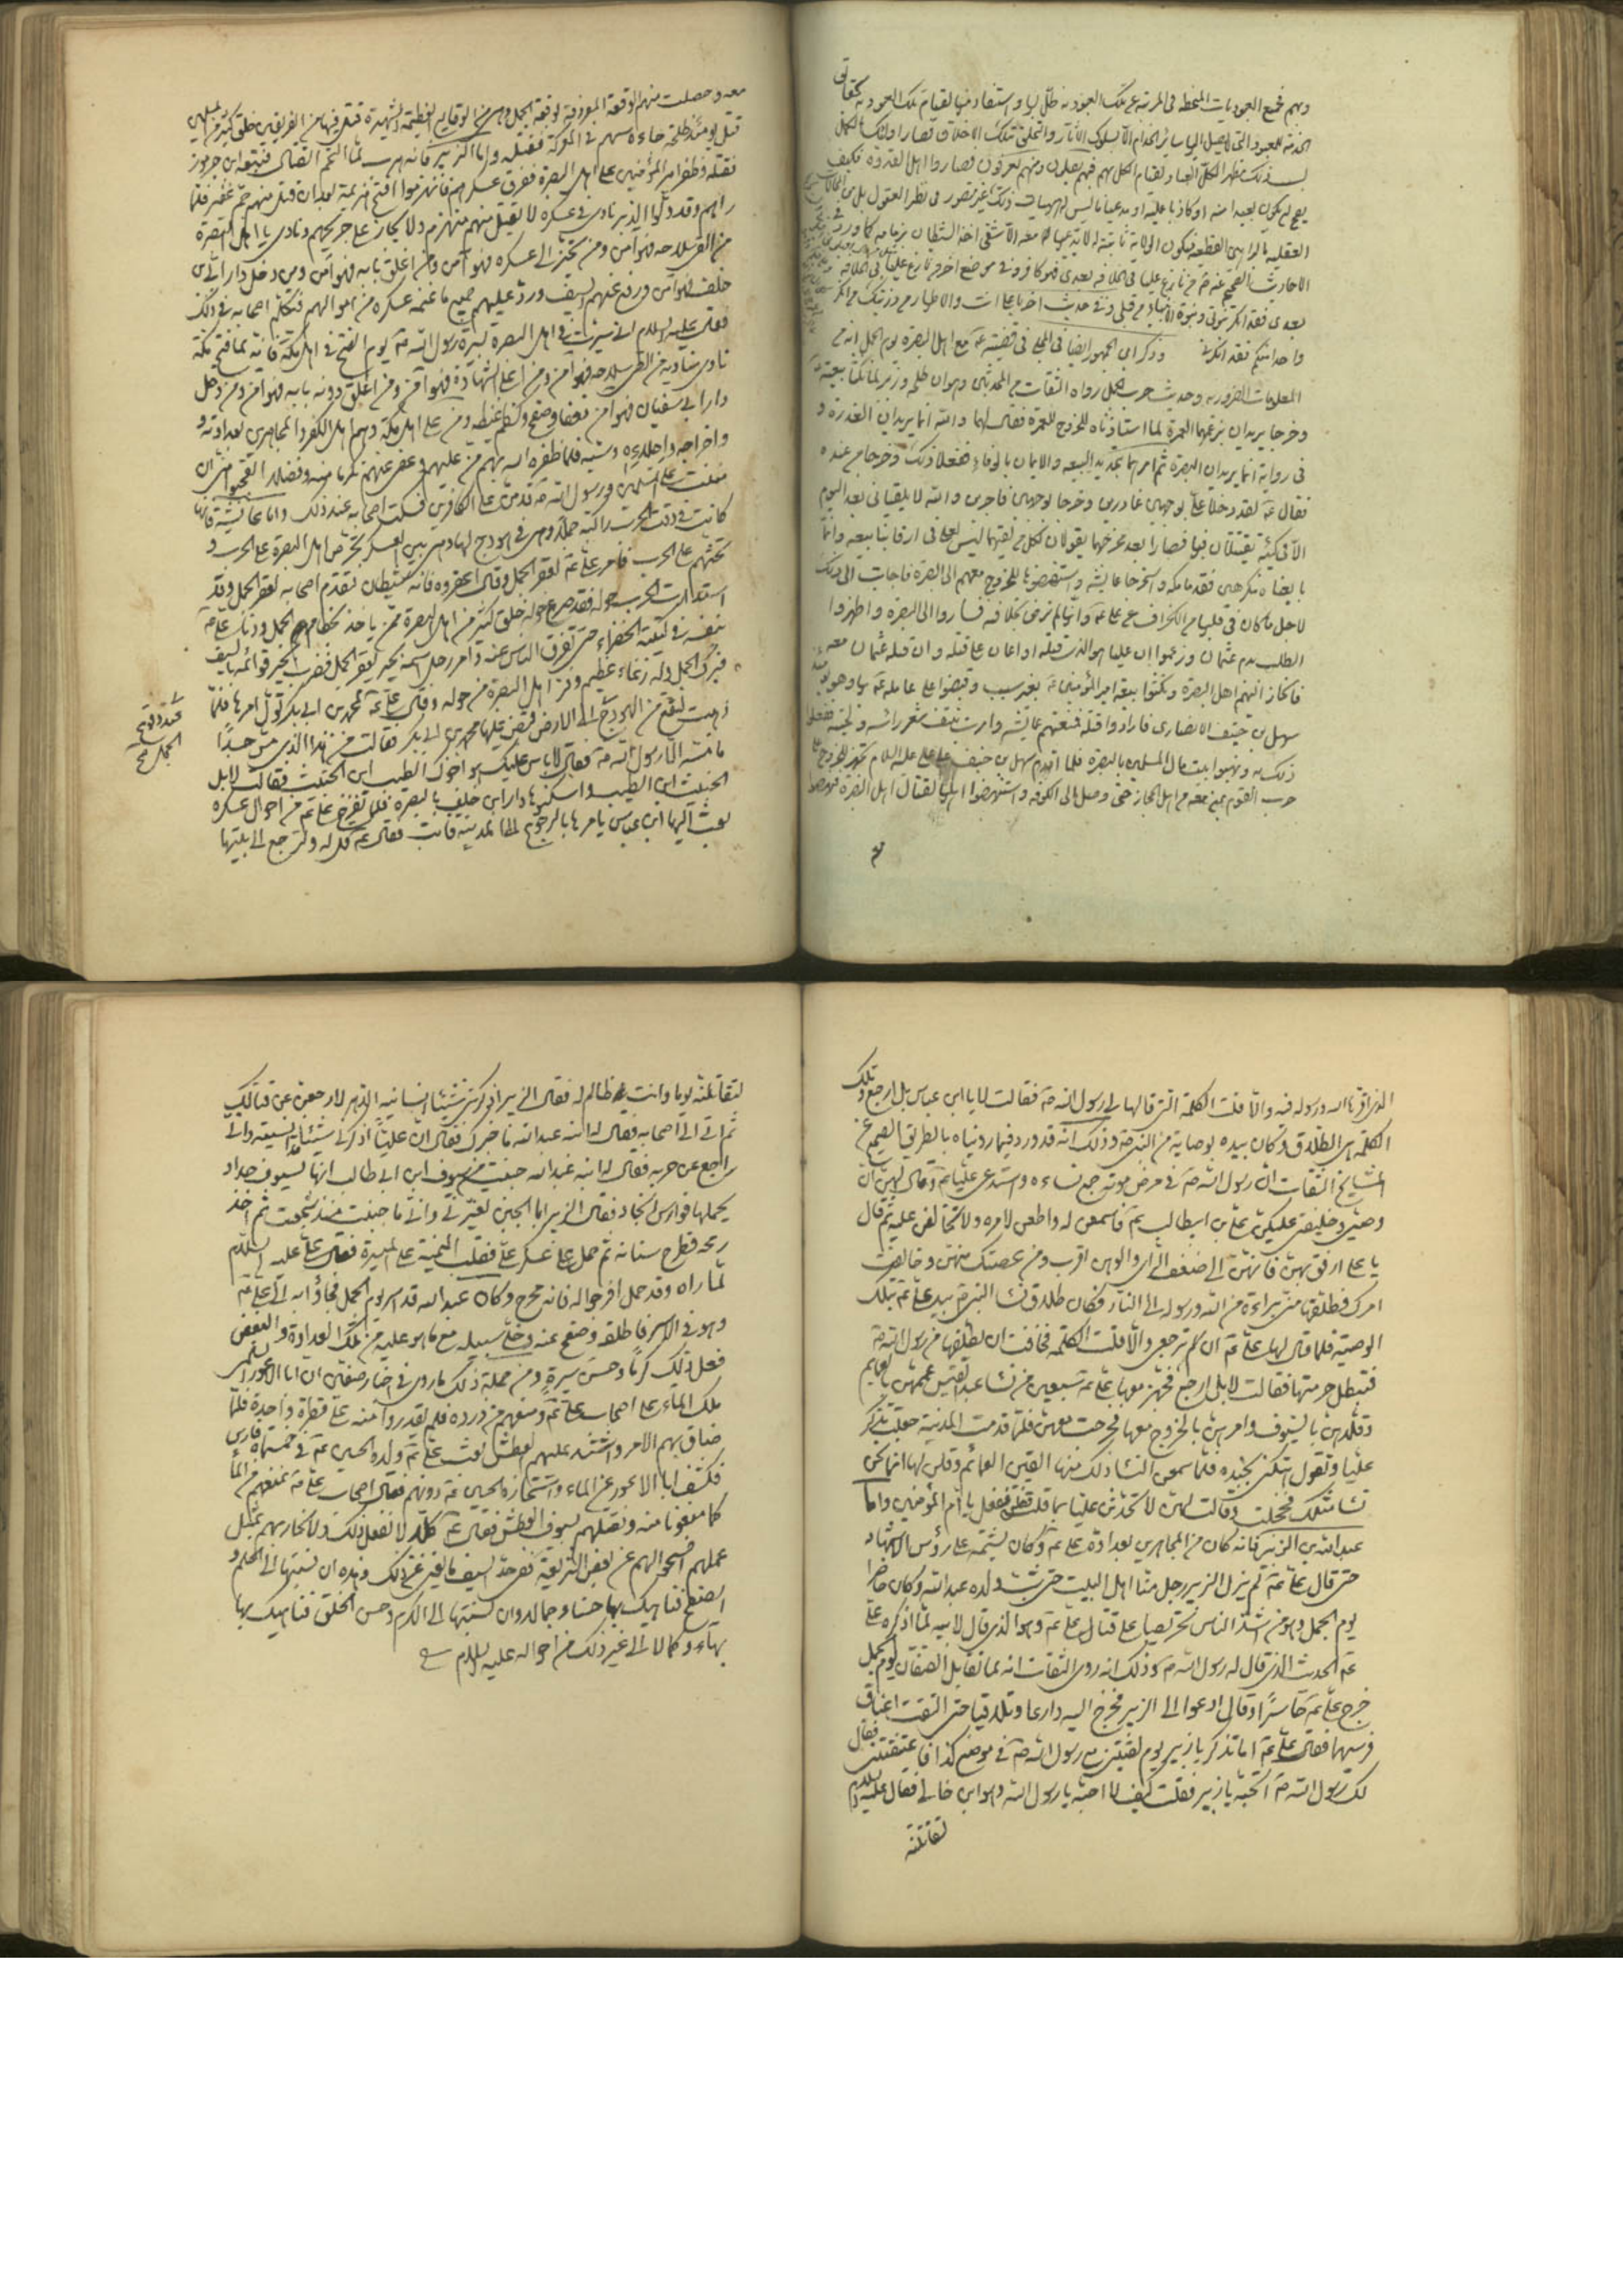 وهم جميع العبوديات المنحطه في المرتبه عن تلك العبوديه ظل لها واستفاد منها لقيام تلك العبوديه
الاحاديث الصحيح عنه من نازع عليا في الخلافه بعدي فهو كافر وفي موضع اخر من نازع عليا في الخلافة
بعدي فقد انكر نبوتي ونبوة الانبياء من قبلي وفي حديث اخر يا علي انت والاطهار من ذريتك من انكر
واحدا منكم فقد انكرني وذكر ابن الجمهور ايضا في المجلي في قضيته مع اهل البصره يوم الجمل انه من
المعلومات الضروريه وحديث حرب الجمل رواه الثقات من المحدثين وهو ان طلحه وزبير لما نكثا بيعته
وخرجا يريدان بزعمهما العمرة لما استاذناه للخروج للعمرة فقال لهما والله انما تريدان الغدرة و
في رواية انما تريدان البصرة ثم امرهما بتجديد البيعه والايمان بالوفاء ففعلا ذلك وخرجا من عنده
فقال لقد دخلا علي بوجهين غادرين وخرجا بوجهين فاجرين والله لا يلقياني بعد اليوم
الا في كتيبة يقتتلان فيها فصارا بعد خروجهما يقولان لكل من لقيهما ليس لعلي في ارقابنا بيعه وانما
بايعناه مكرهين فقدما مكه واستخرجا عايشه واستنهضوها للخروج معهم الى البصرة فاجابت الى ذلك
لاجل ما كان في قلبها من انحراف عن علي وانها لم ترض بخلافه فساروا الى البصره واظهروا
الطلب بدم عثمان وزعموا ان عليا هو الذي قتله او اعان على قتله وان قتلة عثمان معه
فانحاز اليهم اهل البصرة ونكثوا بيعة امير المؤمنين بغير سبب وقبضوا على عامله بها وهو
سهل بن حنيف الانصاري فارادوا قتله فمنعتهم عايشه وامرت بنتف شعر راسه ولحيته ففعلوا
ذلك به ونهبوا بيت مال المسلمين بالبصرة فلما قدم سهل بن حنيف على علي عليه السلام تجهز للخروج الى
حرب القوم بمن معه من اهل الحجاز حتى وصل الى الكوفه واستنهض اهلها لقتال اهل البصرة
معه وحصلت منهم الوقعة المعروفة لوقعة الجمل وهي من الوقايع العظيمة الشهيرة قتل فيها من الفريقين خلق كثير من المسلمين
قتل يومئذ طلحة جاءه سهم في المعركة فقتله واما الزبير فانه هرب لما التحم القتال فتبعه ابن جرموز
فقتله وظفر امير المؤمنين على اهل البصرة ففرق عسكرهم فانهزموا اقبح هزيمة بعد ان قتل منهم جم غفير فلما
راهم وقد ولوا الدبر نادى في عسكره لا يقتل منهم منهزم ولا يجاز على جريحهم ونادى يا اهل البصرة
من القى سلاحه فهو آمن ومن تحيز الى عسكره فهو آمن ومن اغلق بابه فهو آمن ومن دخل دار ابن
خلف فهو آمن ورفع عنهم السيف ورد عليهم جميع ما غنمه عسكره من اموالهم فتكلم اصحابه في ذلك
فقال عليه السلام اني سرت في اهل البصرة بسيرة رسول الله ص يوم الفتح في اهل مكة فانه لما فتح مكة
نادى مناديه من القى سلاحه فهو آمن ومن اعلن الشهادة فهو آمن ومن اغلق دونه بابه فهو آمن ومن دخل
دار ابي سفيان فهو آمن فعفا وصفح وكظم غيظه ومن على اهل مكة وهم اهل الكفر والمجاهرين بعداوته و
واخراجه واجلاءه وسبه فلما ظفره الله بهم من عليهم وعفى عنهم كرما منه وفضلا افتعجبون من ان
مننت على المسلمين ورسول الله ص قد من على الكافرين فسكت اصحابه عند ذلك واما عايشة فانها
كانت في وقت الحرب راكبة جملا وهي في الهودج لها دمر بين العسكر تحرض اهل البصرة على الحرب و
تحثهم على الحرب فامر علي ع بعقر الجمل وقال اعقروه فانه شيطان فتقدم اصحابه لعقر الجمل وقد
استدارت الحرب حوله فقد صرع حوله خلق كثير من اهل البصرة ممن ياخذ بخطام الجمل ودنا علي ع
بنفسه في كتيبته الخضراء حتى تفرق الناس عنه وامر رجل اسمه بحير بعقر الجمل فضرب البحير قوائمه بالسيف
فبرك الجمل وله رغاء عظيم وفر اهل البصرة من حوله وقال علي ع لمحمد بن ابي بكر تول امرها فلما
قصة وقعة
الجمل
ذهبت لتقع من الهودج الى الارض قبض عليها محمد بن ابي بكر فقالت من هذا الذي مس جسدا
ما مسه الا رسول الله ص فقال لا باس عليك هو اخوك الطيب ابن الخبيث فقالت لا بل
الخبيث ابن الطيب واسكنها دار ابن خلف بالبصرة فلما تفرغ علي ع من احوال عسكره
بعث اليها ابن عباس يامرها بالرجوع الى المدينة فابت فقال ع قل له ولترجع الى بيتها
الذي اقرها الله ورسوله فيه والا قلت الكلمة التي قالها لي رسول الله ص فقالت لا يا ابن عباس بل ارجع وتلك
الكلمة هي الطلاق وكان بيده بوصاية من النبي ص وذلك انه قد ورد فيما رويناه بالطريق الصحيح عن
المشايخ الثقات ان رسول الله ص في مرض موته جمع نساءه واستدعى عليا ع وقال لهن ان
وصيي وخليفتي عليكن علي بن ابيطالب ع فاسمعن له واطعن لامره ولا تخالفن عليه ثم قال
يا علي ارفق بهن فانهن الى ضعف الراي والوهن اقرب ومن عصتك منهن وخالفت
امرك فطلقها مني براءة من الله ورسوله الى النار فكان طلاق نساء النبي ص بيد علي ع بتلك
الوصية فلما قال لها علي ع ان لم ترجعي والا قلت الكلمة فخافت ان يطلقها من رسول الله ص
فتبطل حرمتها فقالت لا بل ارجع فجهز معها علي ع سبعين من نساء عبد القيس عممهن بالعمايم
وقلدهن بالسيوف وامرهن بالخروج معها فخرجت معهن فلما قدمت المدينة جعلت تذكر
عليا وتقول هتكني بجنده فلما سمعن النساء ذلك منها القين العمائم وقلن لها انما نحن
نساء مثلك فخجلت وقالت لهن لا تحدثن عليا بما قد قلت ففعلن يا ام المؤمنين واما
عبد الله بن الزبير فانه كان من المجاهرين بعداوة علي ع وكان يشتمه على رؤس الاشهاد
حتى قال علي ع لم يزل الزبير رجل منا اهل البيت حتى شب ولده عبد الله وكان حاضرا
يوم الجمل وهو من اشد الناس تحريصا على قتال علي ع وهو الذي قال لابيه لما اذكره علي
ع الحديث الذي قال له رسول الله ص وذلك انه روى الثقات انه لما تقابل الصفان يوم الجمل
خرج علي ع حاسرا وقال ادعوا الي الزبير فخرج اليه دارعا وتلاقيا حتى التقت اعناق
فرسيهما فقال علي ع اما تذكر يا زبير يوم لقيتني مع رسول الله ص في موضع كذا فاعتنقتني فقال
لك رسول الله ص اتحبه يا زبير فقلت كيف لا احبه يا رسول الله وهو ابن خالي فقال عليه السلام
لتقاتلنه
لتقاتلنه يوما وانت ظالم له فقال الزبير اذكرتني شيئا انسانيه الدهر لارجعن عن قتالك
ثم اتى الى اصحابه فقال له ابنه عبد الله ما خبرك فقال ان عليا اذكرني شيئا قد نسيته واني
راجع عن حربه فقال له ابنه عبد الله جبنت من سيوف ابن ابي طالب انها لسيوف حداد
يحملها فوارس انجاد فقال الزبير اما الجبن لغيري واني ما جبنت منذ شجعت ثم اخذ
رمحه فطرح سنانه ثم حمل على عسكر علي فقلب الميمنة على الميسرة فقال علي عليه السلام
لما راه وقد حمل افرجوا له فانه محرج وكان عبد الله قد اسر يوم الجمل فجاؤا به الى علي ع
وهو في الاسر فاطلقه وصفح عنه وخلى سبيله مع ما هو عليه من تلك العداوة والبغض
فعل ذلك كرما وحسن سيرة ومن جملة ذلك ما روي في اخبار صفين ان ابا الاعور السلمي
ملك الماء على اصحاب علي ع ومنعهم من وروده فلم يقدروا منه على قطرة واحدة فلما
ضاق بهم الامر واشتد عليهم العطش بعث علي ع ولده الحسين ع في خمسمائة فارس
فكشف ابا الاعور عن الماء واستحازه الحسين ع دونهم فقال اصحاب علي ع نمنعهم من الماء
كما منعونا منه ونقتلهم بسيوف العطش فقال ع كلا لا نفعل ذلك ولا نجازيهم بمثل
عملهم افسحوا لهم عن بعض الشريعة ففي حد السيف ما يغني عن ذلك وهذه ان نسبتها الى الحلم و
الصفح فناهيك بها حسنا وجمالا وان نسبتها الى الكرم وحسن الخلق فناهيك بها
بهاء وكمالا الى غير ذلك من احواله عليه السلام